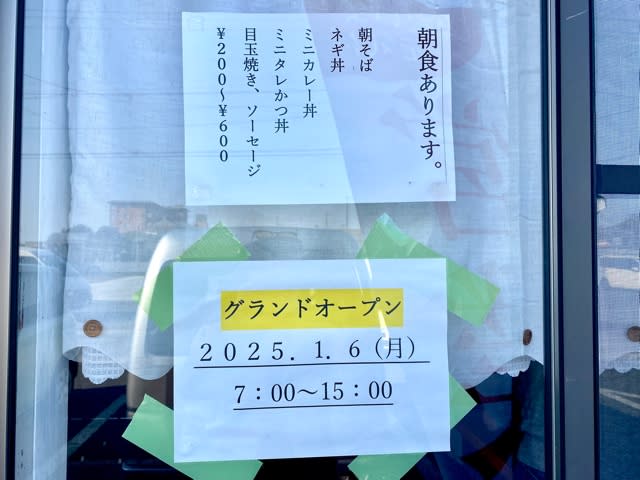 朝食あります。
朝そば
ネギ丼
ミニカレー丼
ミニタレかつ丼
目玉焼き、ソーセージ
¥200〜¥600
グランドオープン
2025.1.6(月)
7:00〜15:00